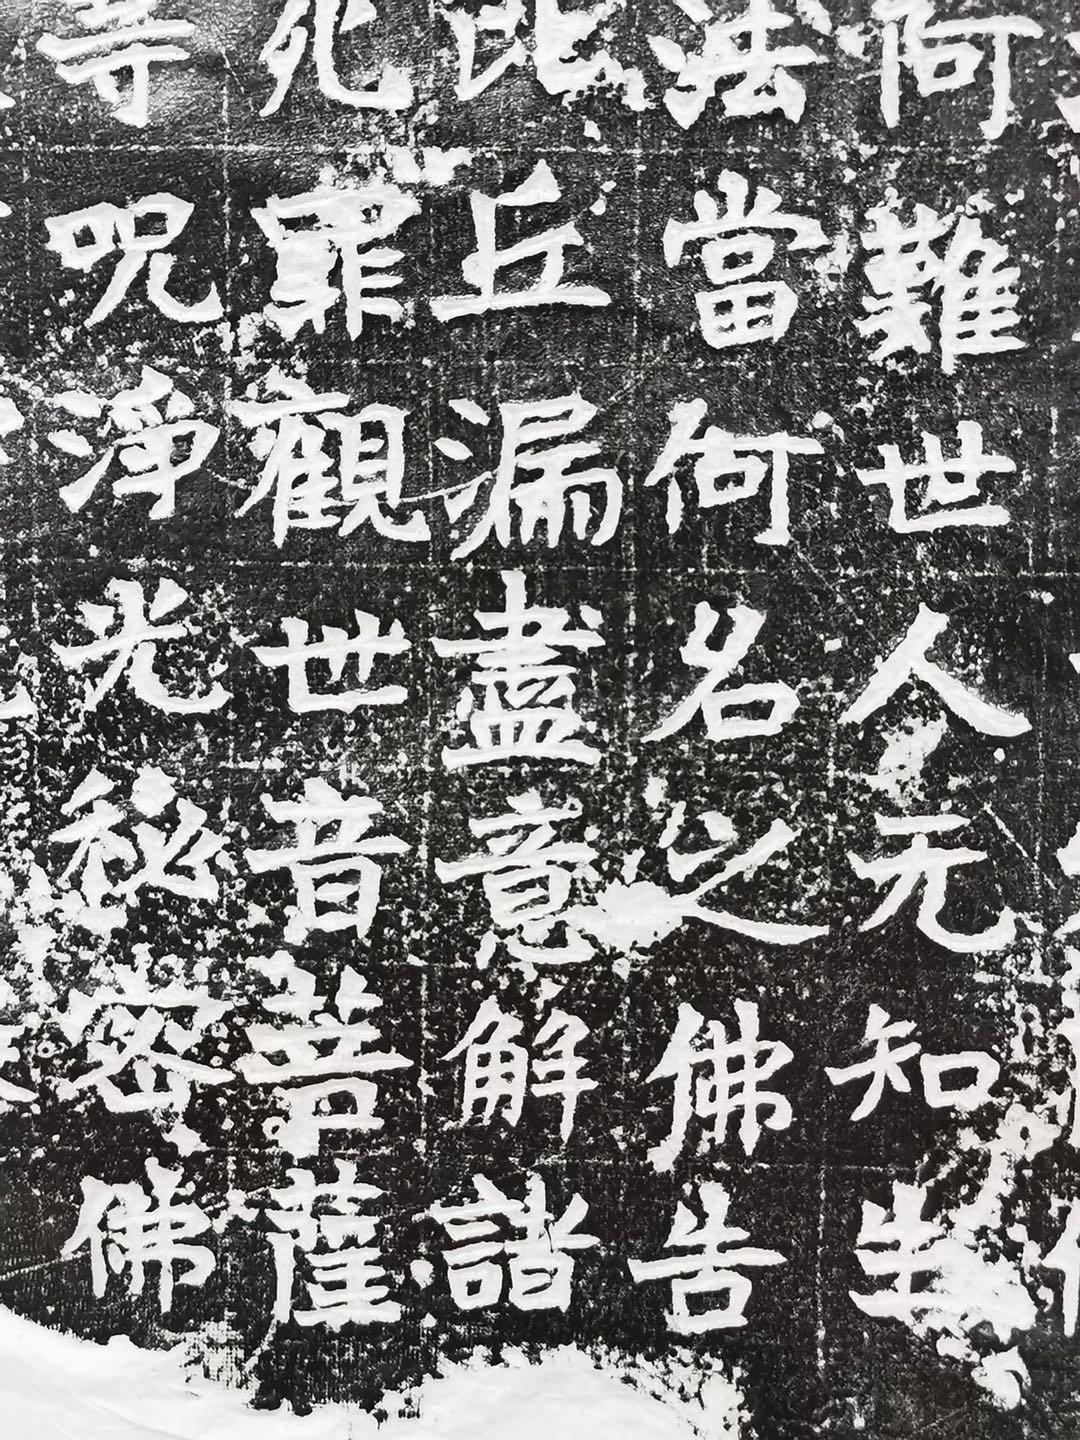 阿難世人元知生
法當何名之佛告
比丘漏盡意解諸
死罪觀世音菩薩
等呪淨光秘密佛